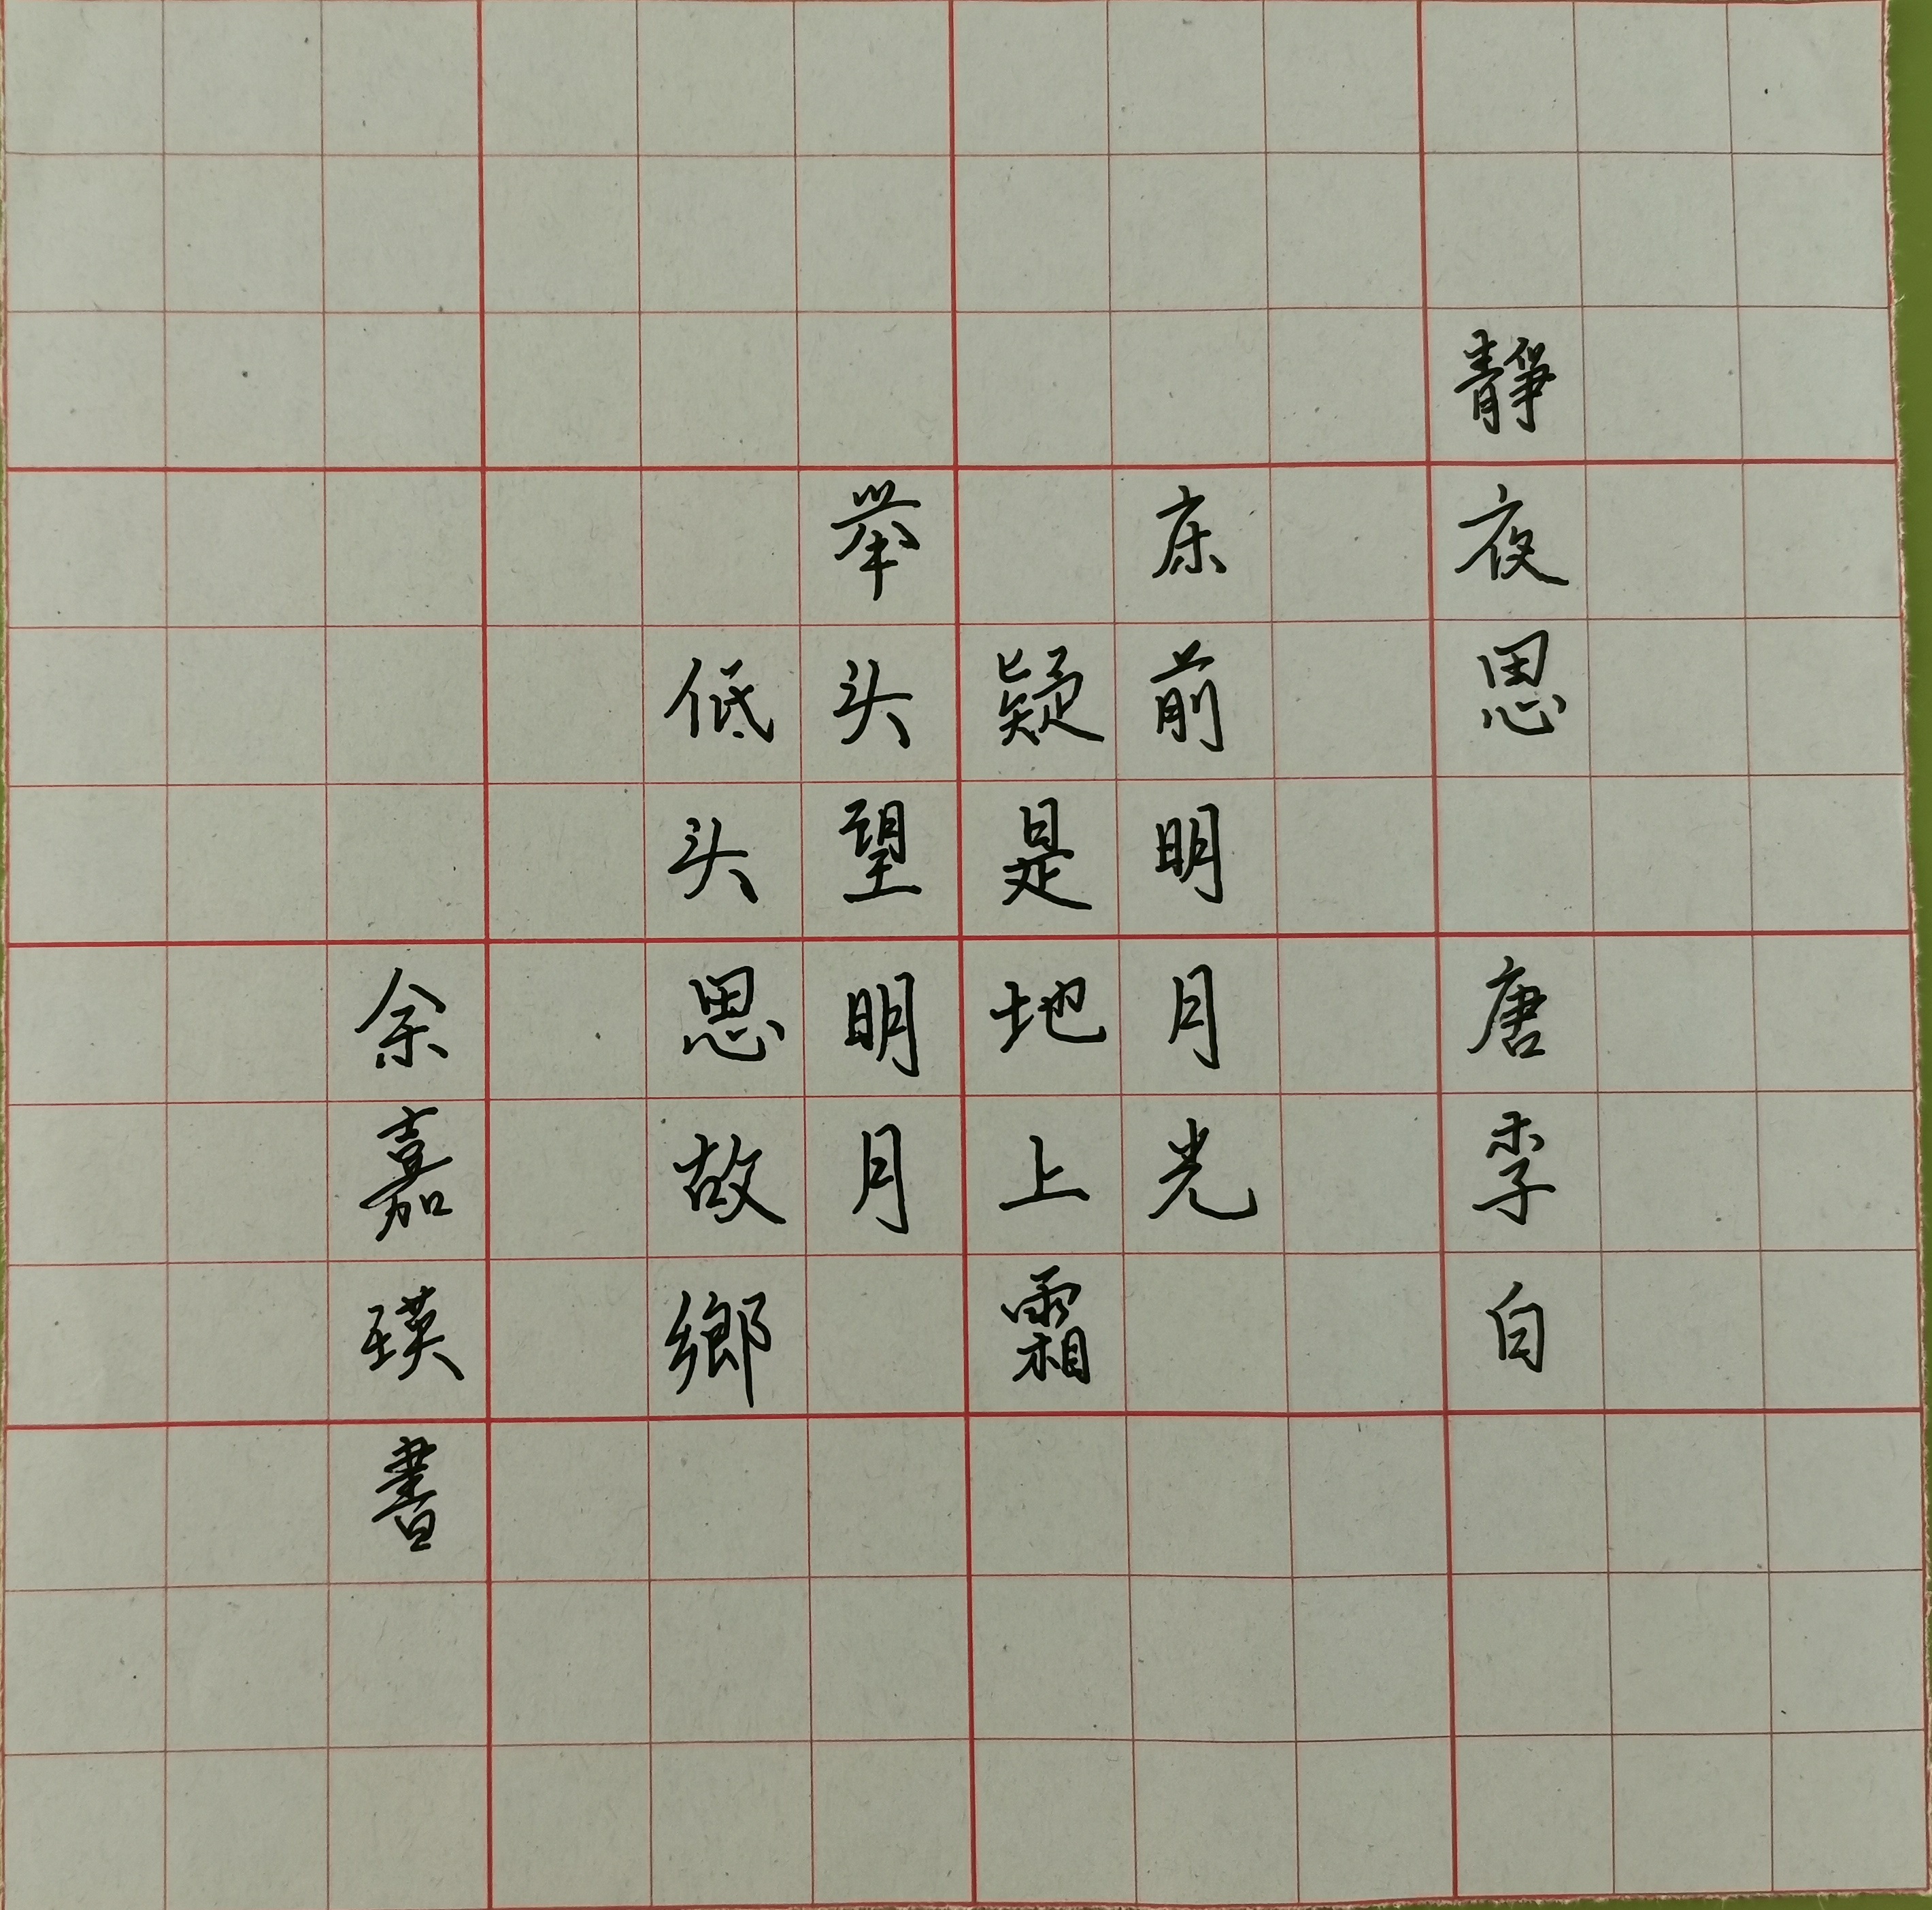 靜夜思 唐李白
床前明月光
疑是地上霜
举头望明月
低头思故鄉
余嘉瑛書